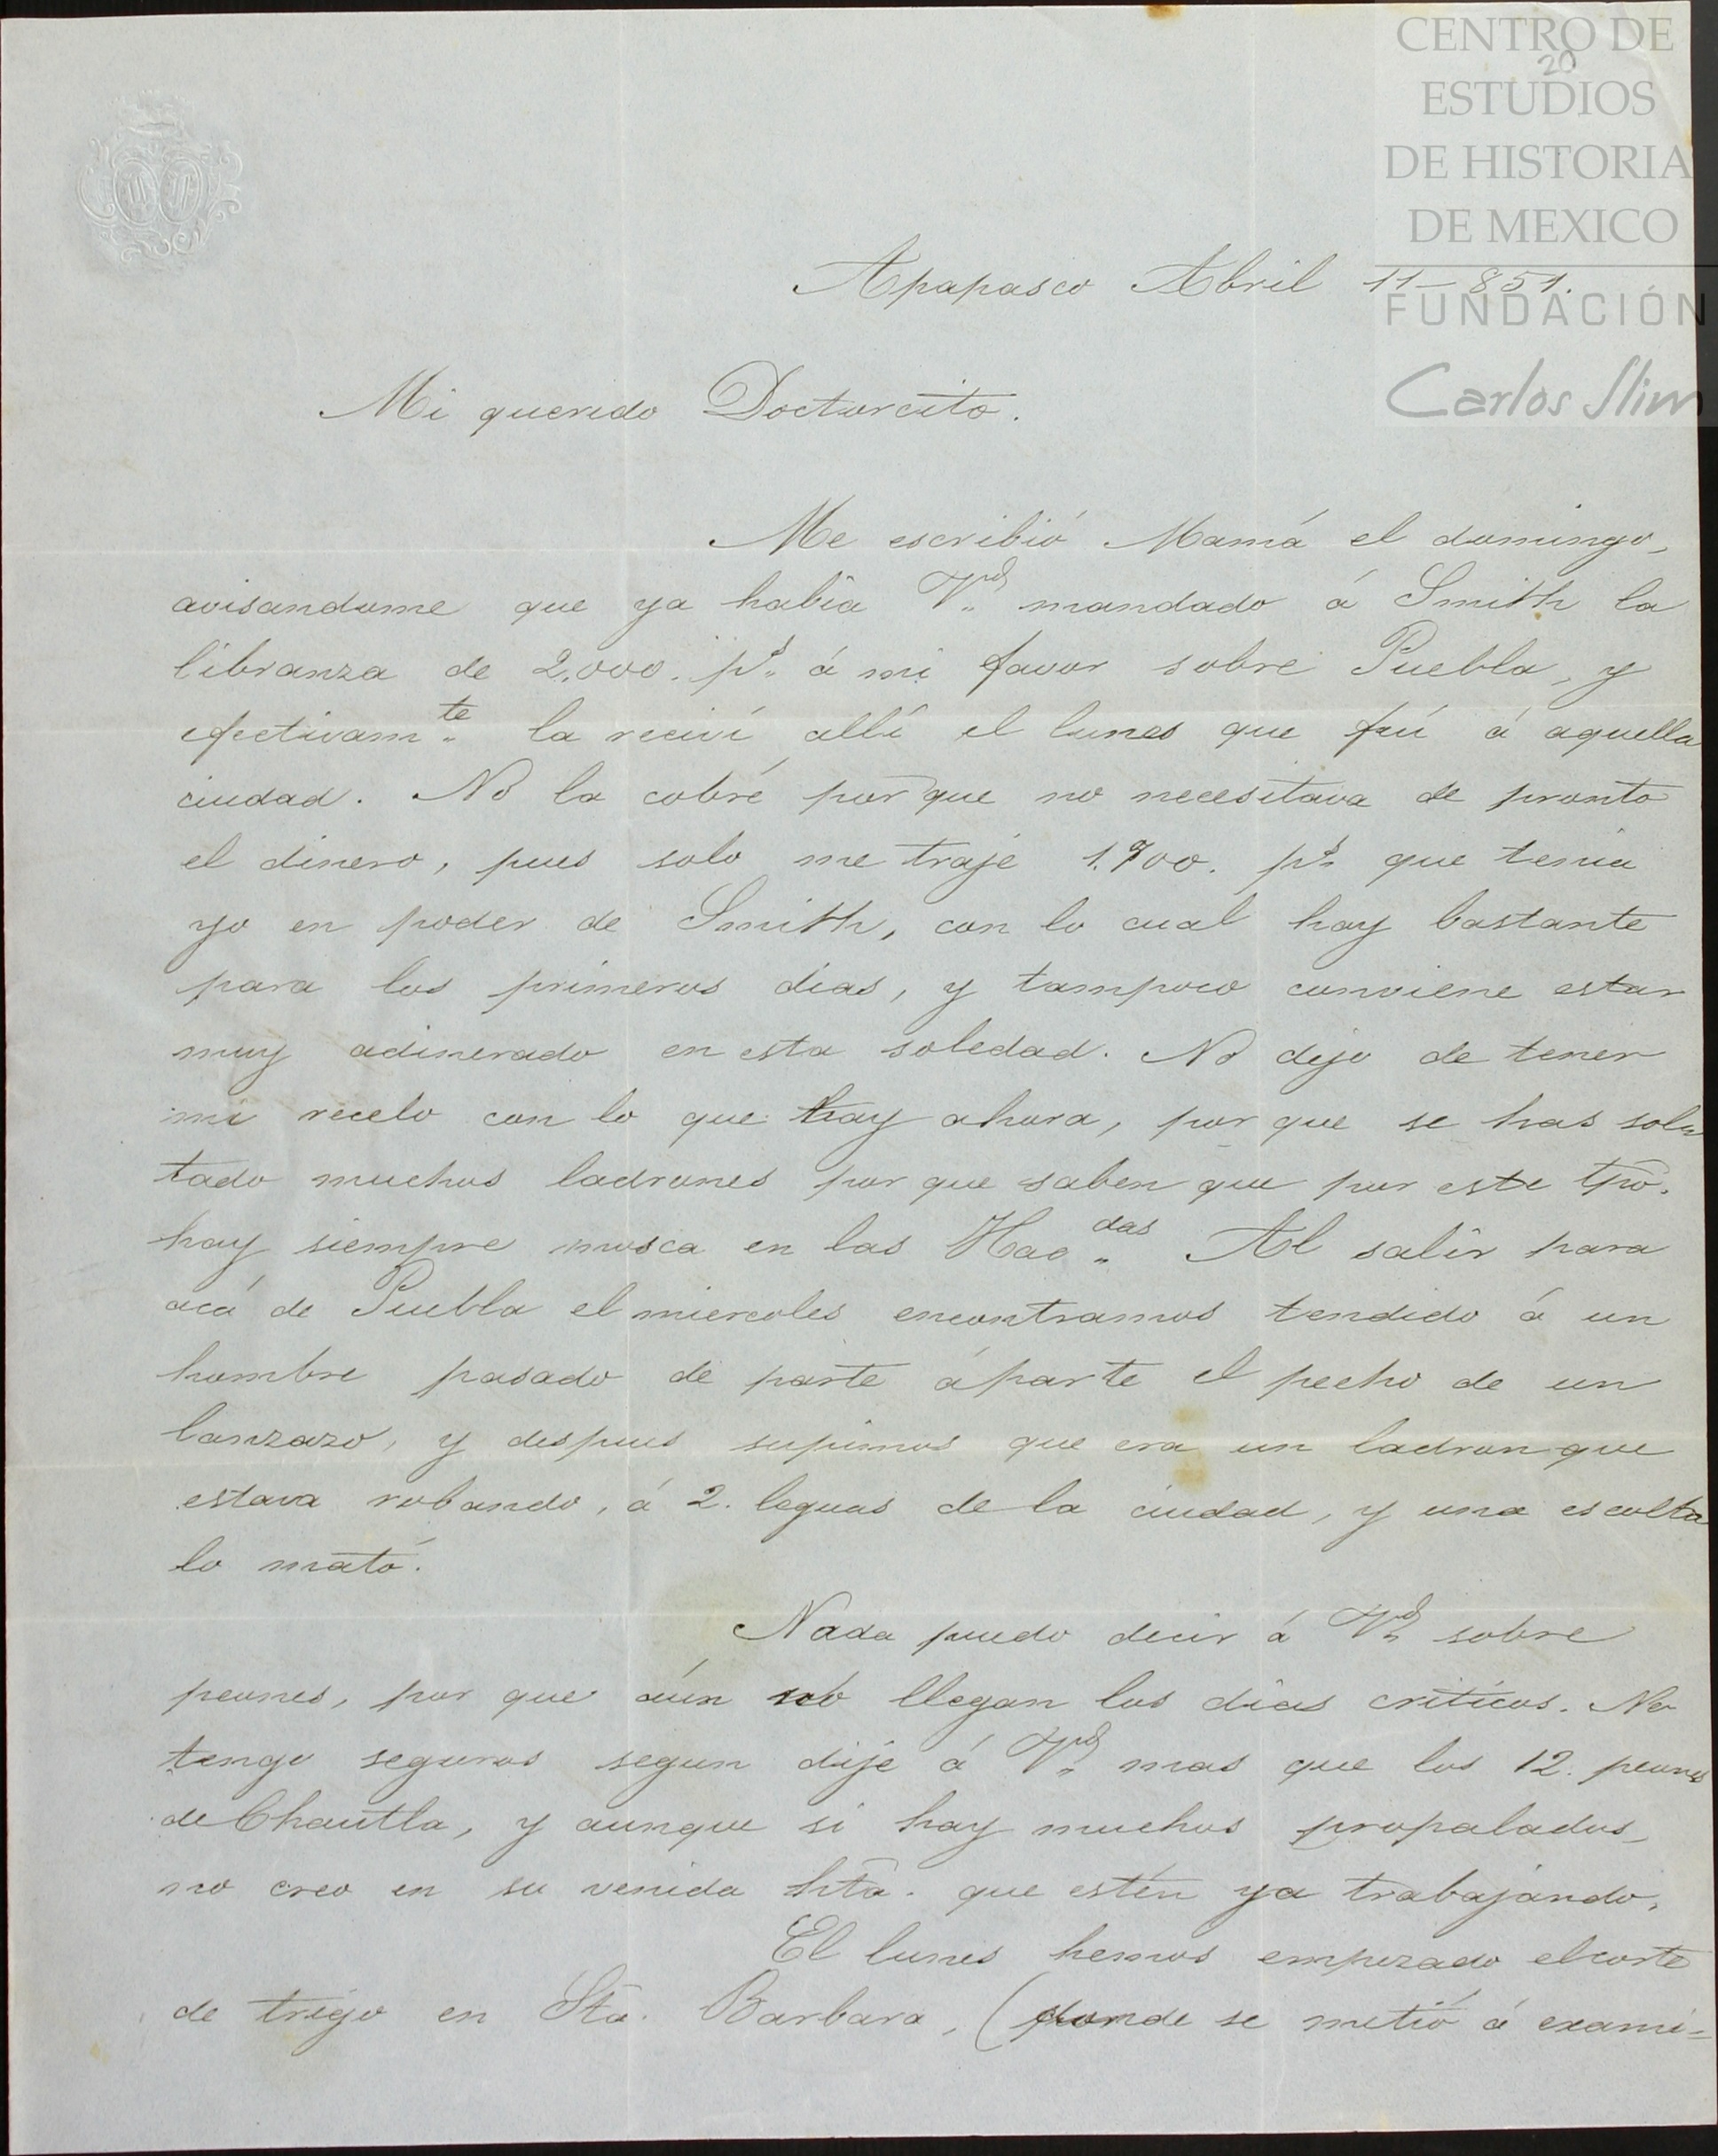 CENTRO DE
20
ESTUDIOS
DE HISTORIA
DE MEXICO
Apapasco Abril 11-851.
FUNDACIÓN
Carlos Slim
Mi querido Doctorcito.
Me escribió Mamá el domingo,
avisandome que ya habia Vd. mandado á Smith la
libranza de 2,000. ps. á mi favor sobre Puebla, y
efectivamte. la reciví allí el lunes que fuí á aquella
ciudad. No la cobré por que no necesitava de pronto
el dinero, pues solo me traje 1.700. ps. que tenia
yo en poder de Smith, con lo cual hay bastante
para los primeros dias, y tampoco conviene estar
muy adinerado en esta soledad. No dejo de tener
mi recelo con lo que hay ahora, por que se has sol
tado muchos ladrones por que saben que por este tpō.
hay siempre mosca en las Hac.das Al salir para
acá de Puebla el miercoles encontramos tendido á un
hombre pasado de parte áparte el pecho de un
lanzazo, y despues supimos que era un ladron que
estava robando, á 2. leguas de la ciudad, y una escolta
lo mató.
Nada puedo decir á Vd. sobre
peones, por que aún nó llegan los dias críticos. No
tengo seguros segun dije á Vd. mas que los 12. peones
de Chautla, y aunque si hay muchos propalados,
no creo en su venida htā. que estén ya trabajando.
El lunes hemos empezado el corte
de trigo en Sta. Barbara, (donde se metió á exami=